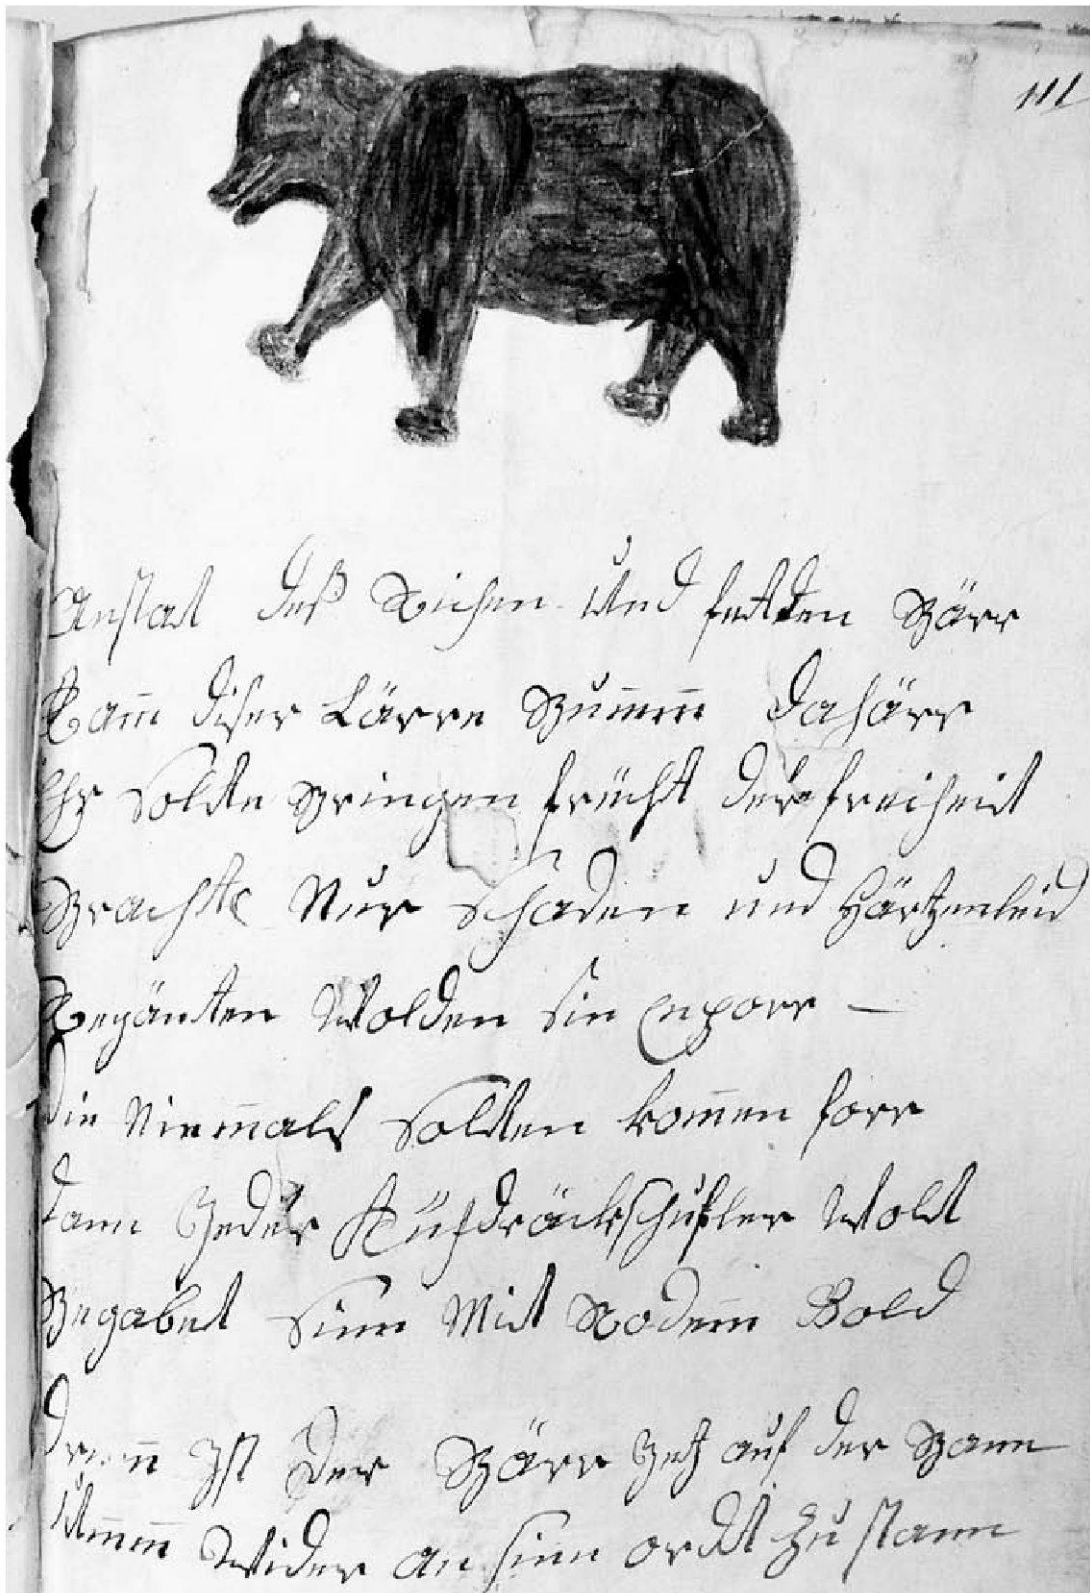 111
Anstat deß Richen Und fetten Bärr
Kam̄ diser Lärre Bum̄m̄ dahärr
Ehr Soldte Bringen frücht der freiheit
Brachte Nur Schaden und Härtzenleid
Regänten Wolden sin Enporr –
die Niem̄als Soldten kom̄en forr
dann Jeder Küh dräckschufler Wolt
Begabet Sinn Mit Rodem̄ Gold
drum̄ Ist der Bärr Jetz auf der Bann
Um̄m̄ Wider an sinn ordt zu stann